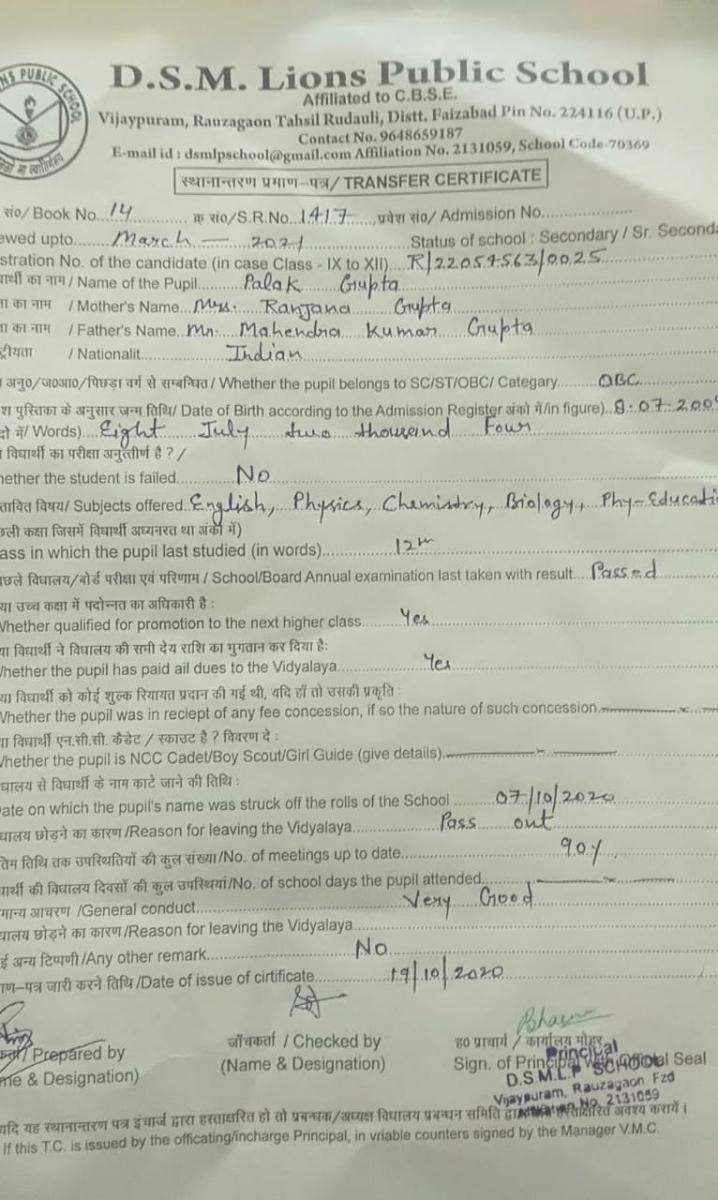 NS PUBLIC SCHOOL
D.S.M. Lions Public School
Affiliated to C.B.S.E.
Vijaypuram, Rauzagaon Tahsil Rudauli, Distt. Faizabad Pin No. 224116 (U.P.)
Contact No. 9648659187
E-mail id : dsmlpschool@gmail.com Affiliation No. 2131059, School Code-70369
स्थानान्तरण प्रमाण–पत्र/ TRANSFER CERTIFICATE
सं०/ Book No. 14 क्र सं०/S.R.No. 1417 प्रवेश सं०/ Admission No.
ewed upto March — 2021 Status of school : Secondary / Sr. Seconda
stration No. of the candidate (in case Class - IX to XII) R/22059563/0025
ार्थी का नाम / Name of the Pupil Palak Gupta
ा का नाम / Mother's Name Mrs. Ranjana Gupta
ा का नाम / Father's Name Mr. Mahendra Kumar Gupta
ट्रीयता / Nationalit Indian
अनु०/ज०आ०/पिछड़ा वर्ग से सम्बन्धित / Whether the pupil belongs to SC/ST/OBC/ Categary OBC
श पुस्तिका के अनुसार जन्म तिथि/ Date of Birth according to the Admission Register अंको में/in figure) 8.07.200
दो में/ Words) Eight July two thousand Four
विद्यार्थी का परीक्षा अनुत्तीर्ण है ? /
hether the student is failed No
तावित विषय/ Subjects offered English, Physics, Chemistry, Biology, Phy-Educati
छली कक्षा जिसमें विद्यार्थी अध्यनरत था अंको में)
ass in which the pupil last studied (in words) 12th
छले विद्यालय/बोर्ड परीक्षा एवं परिणाम / School/Board Annual examination last taken with result Passed
या उच्च कक्षा में पदोन्नत का अधिकारी है :
Whether qualified for promotion to the next higher class Yes
या विद्यार्थी ने विद्यालय की सभी देय राशि का भुगतान कर दिया है:
Whether the pupil has paid ail dues to the Vidyalaya Yes
या विद्यार्थी को कोई शुल्क रियायत प्रदान की गई थी, यदि हाँ तो उसकी प्रकृति :
Whether the pupil was in reciept of any fee concession, if so the nature of such concession. x
या विद्यार्थी एन.सी.सी. कैडेट / स्काउट है ? विवरण दे :
Whether the pupil is NCC Cadet/Boy Scout/Girl Guide (give details) x
द्यालय से विद्यार्थी के नाम काटे जाने की तिथि :
ate on which the pupil's name was struck off the rolls of the School 07/10/2020
द्यालय छोड़ने का कारण /Reason for leaving the Vidyalaya Pass out
तिम तिथि तक उपस्थितियों की कुल संख्या/No. of meetings up to date 90%
ार्थी की विद्यालय दिवसों की कुल उपस्थियां/No. of school days the pupil attended x
मान्य आचरण /General conduct Very Good
द्यालय छोड़ने का कारण/Reason for leaving the Vidyalaya
ई अन्य टिप्पणी/Any other remark No
ाण–पत्र जारी करने तिथि /Date of issue of cirtificate 19/10/2020
जाँचकर्ता / Checked by ह० प्राचार्य / कार्यालय मोहर
/ Prepared by (Name & Designation) Sign. of Principal with Official Seal
me & Designation)
Principal
D.S.M.L.P SCHOOL
Vijaypuram, Rauzagaon Fzd
No. 2131059
यदि यह स्थानान्तरण पत्र इंचार्ज द्वारा हस्ताक्षरित हो तो प्रबन्धक/अध्यक्ष विद्यालय प्रबन्धन समिति अवश्य करायें ।
If this T.C. is issued by the officating/incharge Principal, in vriable counters signed by the Manager V.M.C.